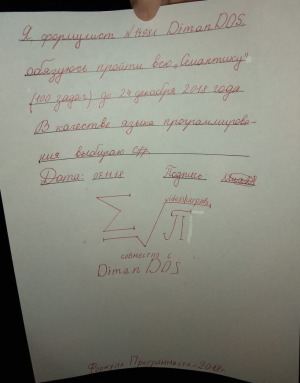 Я формулист DimanDOS
обязуюсь пройти всю „Семантику"
(100 задач) до 24 декабря 2018 года
В качестве языка программирова-
ния выбираю C#.
Дата: 05.11.18 Подпись:
Σ√π
совместно с
DimanDOS
Формула Программиста - 2018г.